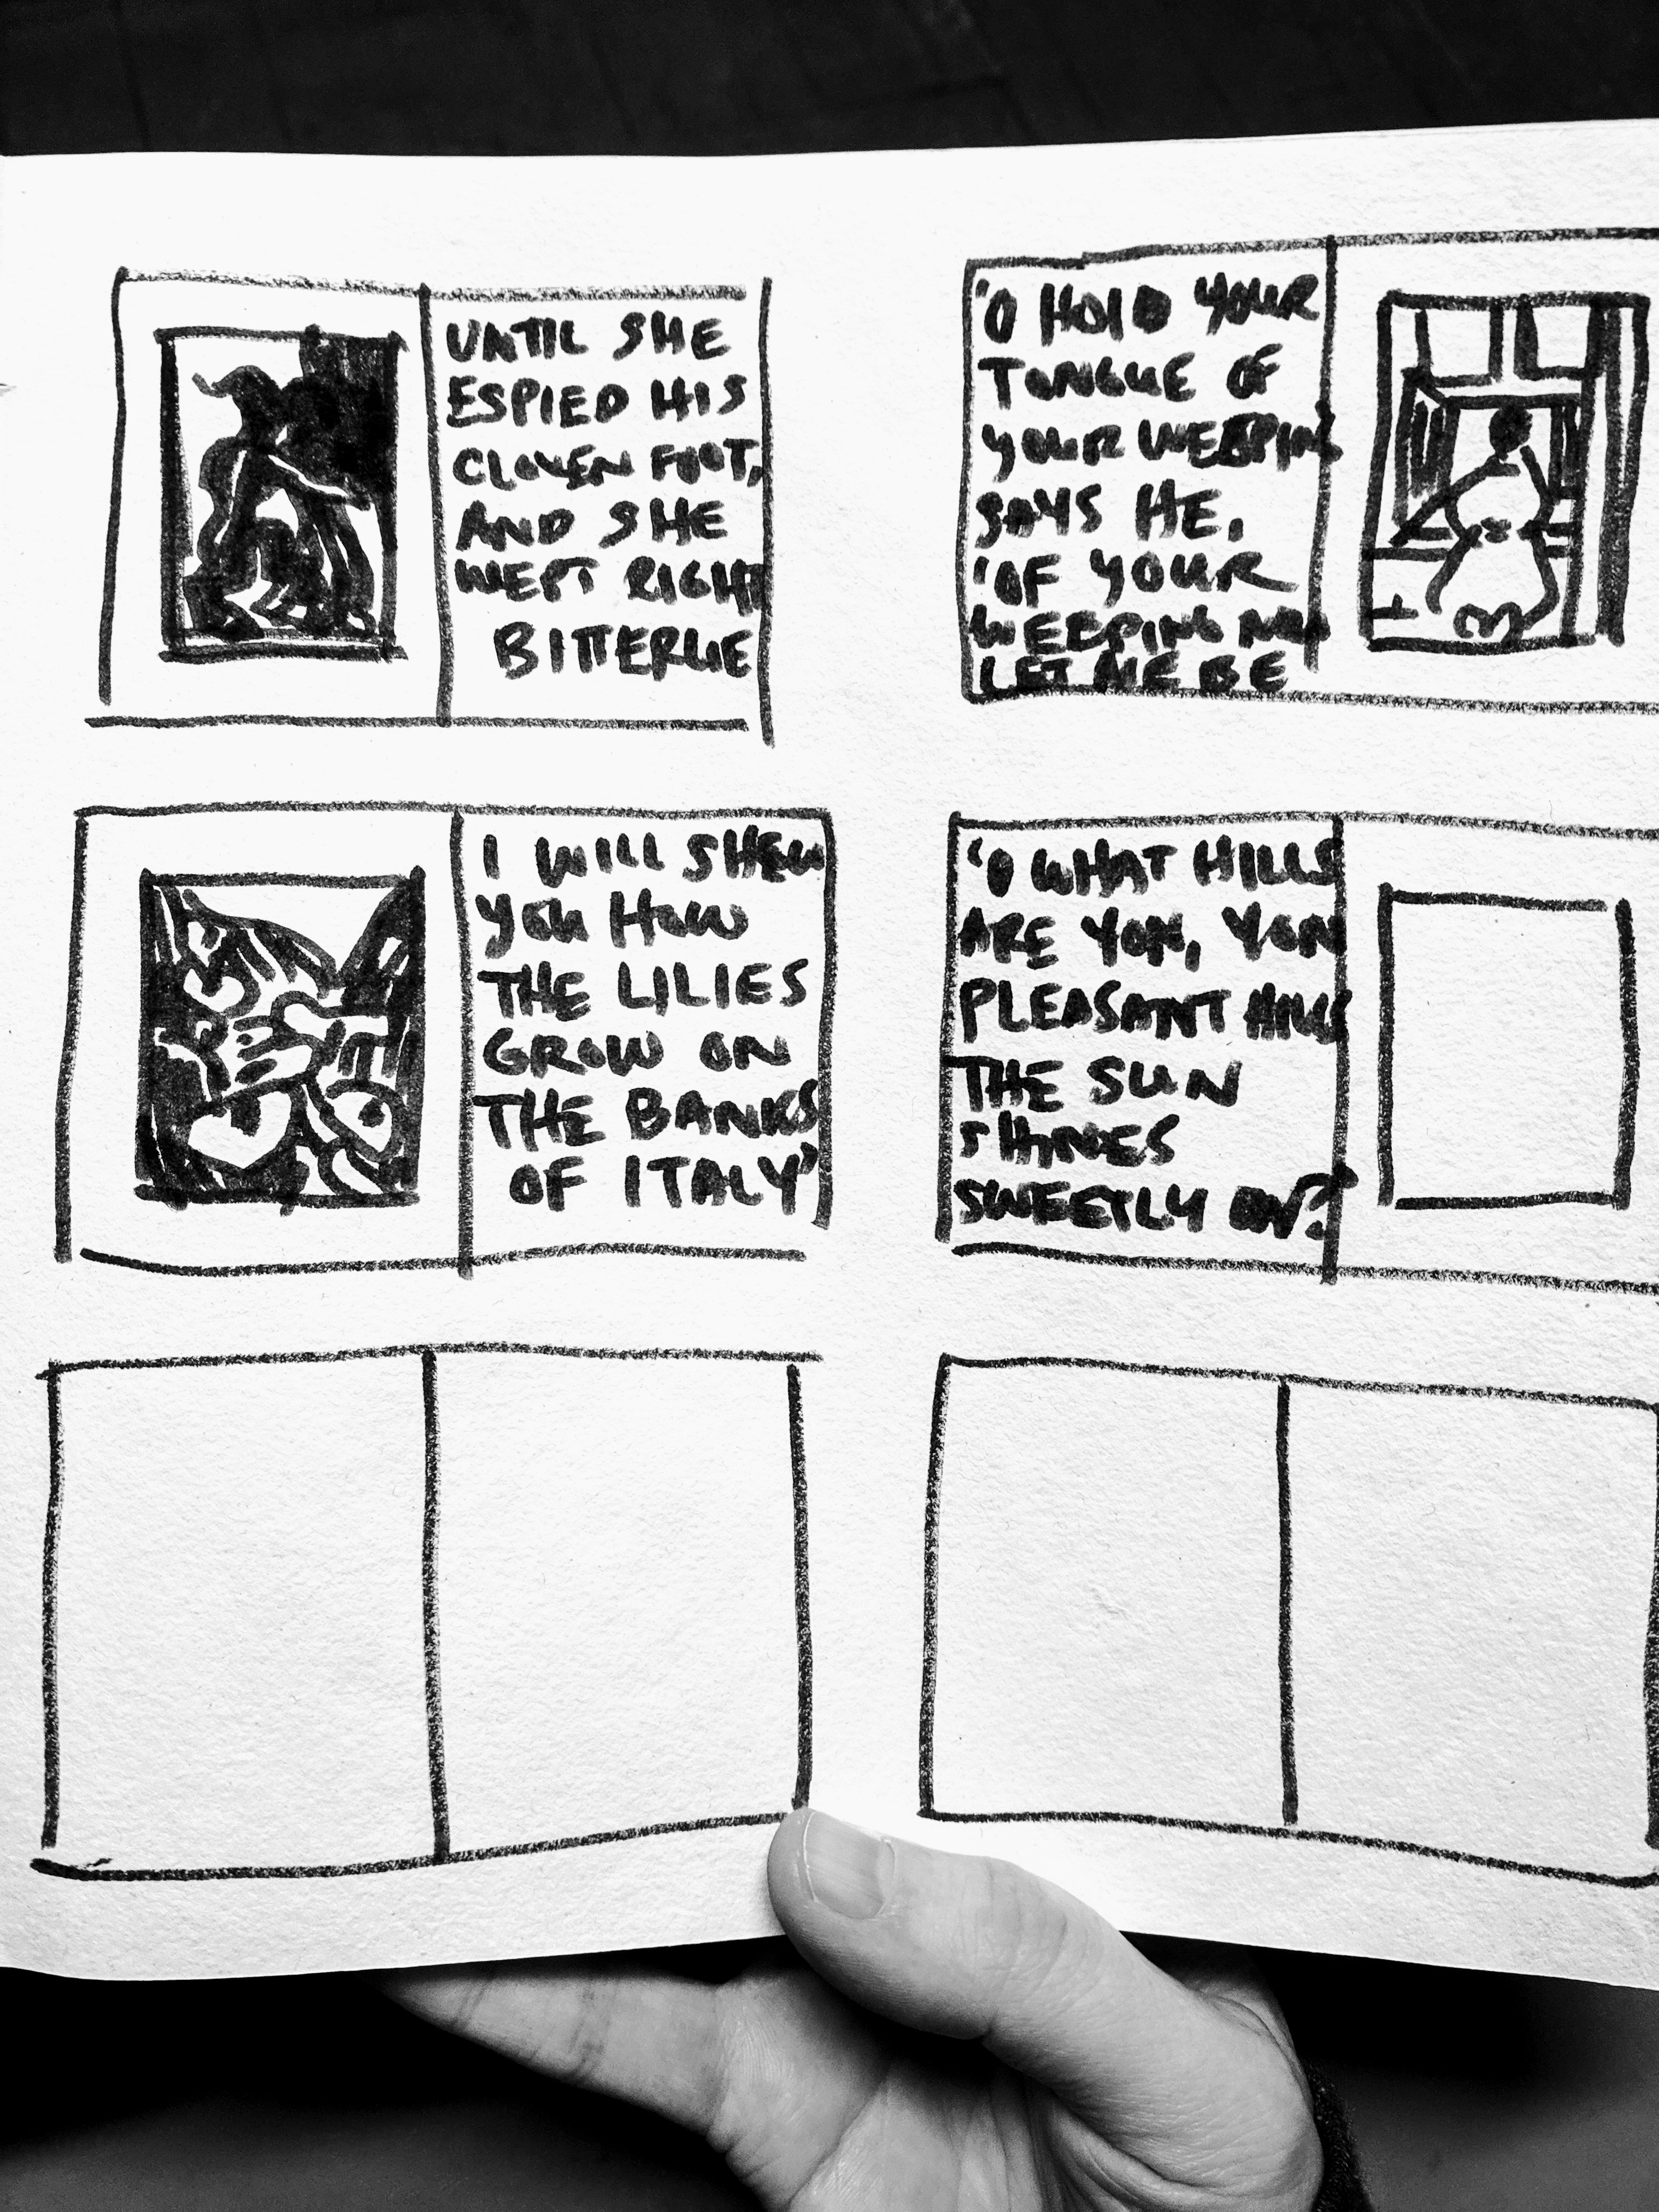 UNTIL SHE
ESPIED HIS
CLOVEN FOOT,
AND SHE
WEPT RIGHT
BITTERLIE
'O HOLD YOUR
TONGUE OF
YOUR WEEPING
SAYS HE,
'OF YOUR
WEEPING NOW
LET ME BE
I WILL SHEW
YOU HOW
THE LILIES
GROW ON
THE BANKS
OF ITALY'
'O WHAT HILLS
ARE YON, YON
PLEASANT HILLS
THE SUN
SHINES
SWEETLY ON?